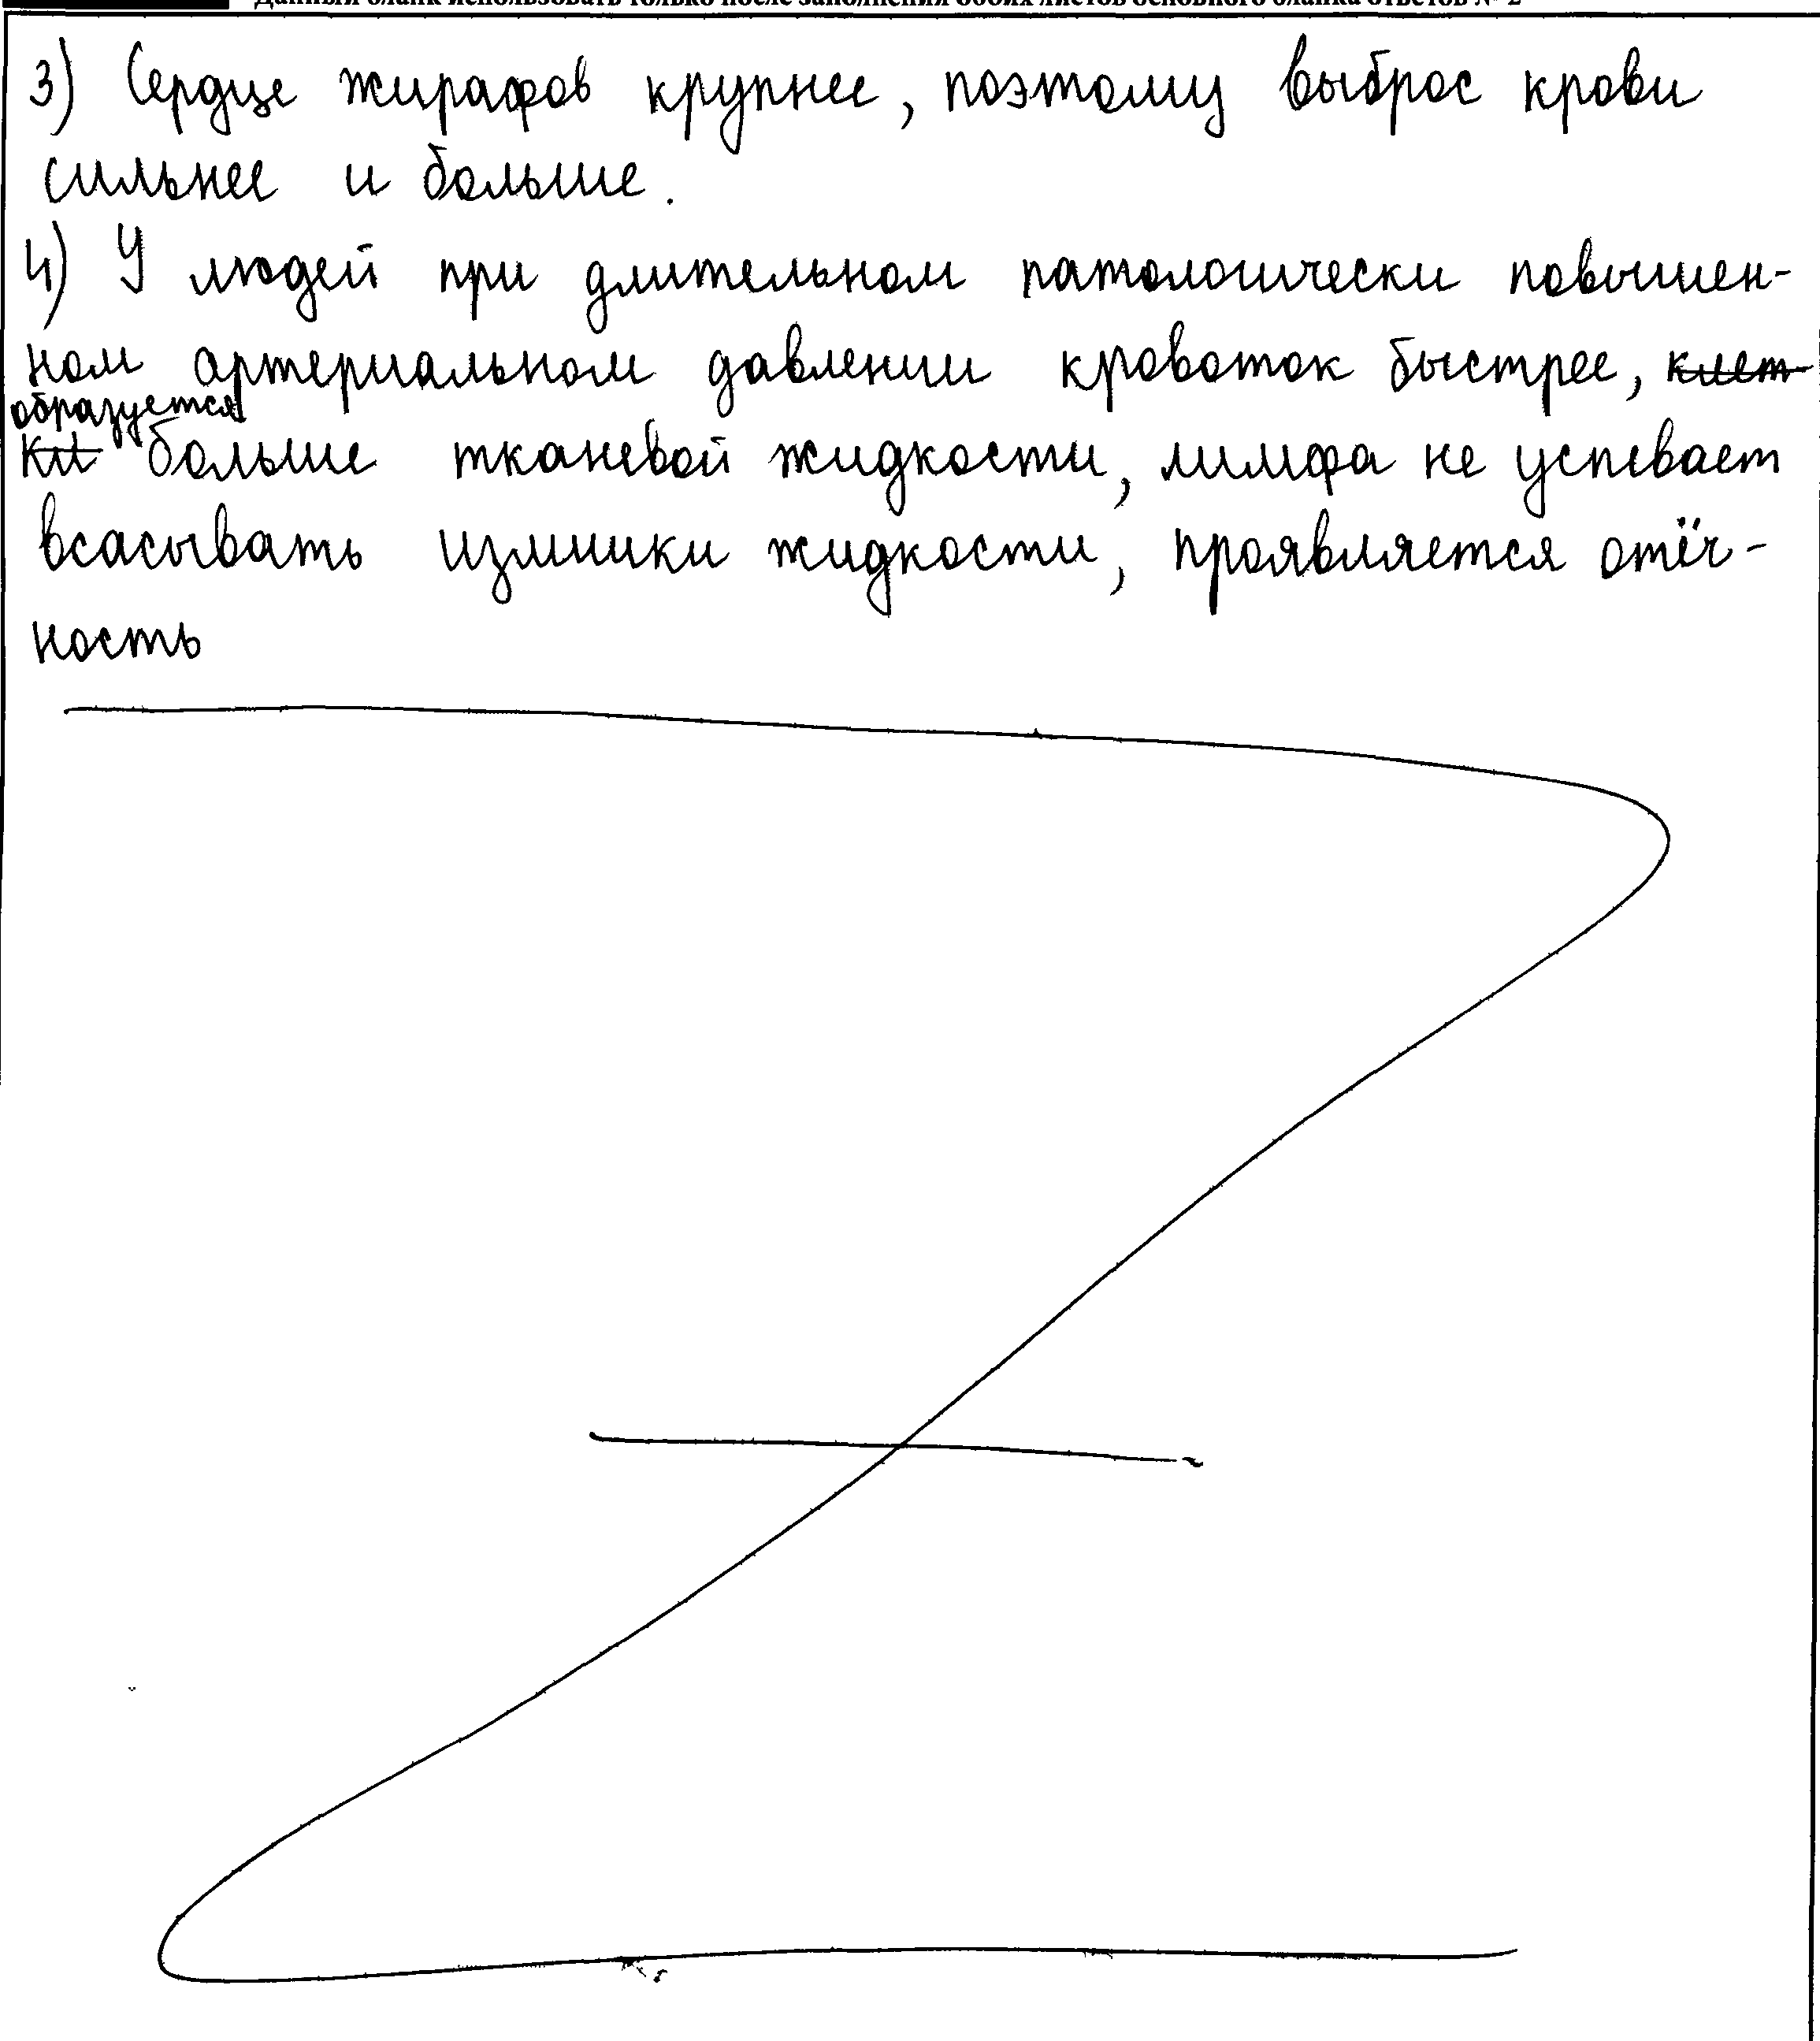 Данный бланк использовать только после заполнения обоих листов основного бланка ответов № 2
3) Сердце жирафов крупнее, поэтому выброс крови
сильнее и больше.
4) У людей при длительном патологически повышен-
ном артериальном давлении кровоток быстрее, клет-
образуется
ки больше тканевой жидкости, лимфа не успевает
всасывать излишки жидкости, проявляется отёч-
ность